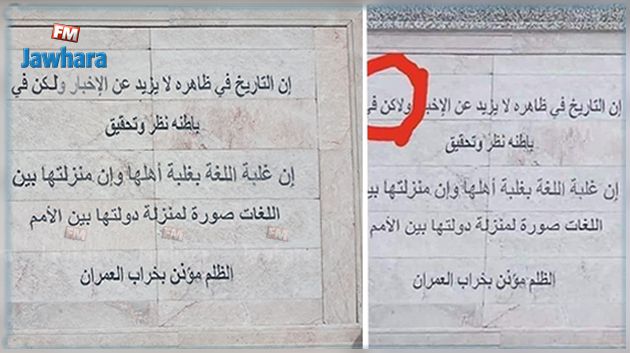 FM
Jawhara
إن التاريخ في ظاهره لا يزيد عن الإخبار ولكن في
باطنه نظر وتحقيق
إن غلبة اللغة بغلبة أهلها وإن منزلتها بين
اللغات صورة لمنزلة دولتها بين الأمم
FM FM FM
الظلم مؤذن بخراب العمران
إن التاريخ في ظاهره لا يزيد عن الإخبار ولاكن في
باطنه نظر وتحقيق
إن غلبة اللغة بغلبة أهلها وإن منزلتها بين
اللغات صورة لمنزلة دولتها بين الأمم
الظلم مؤذن بخراب العمران